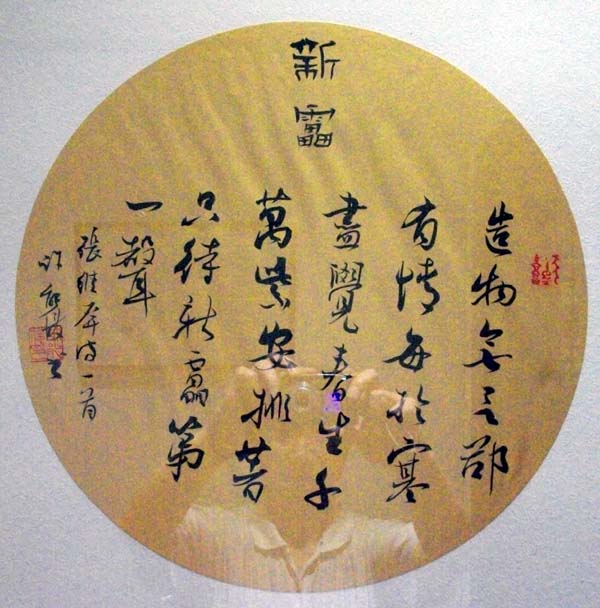 新靁
造物無言郤
有情每於寒
盡覺春生千
萬紫安排著
只待新靁第
一聲
張維屏詩一首